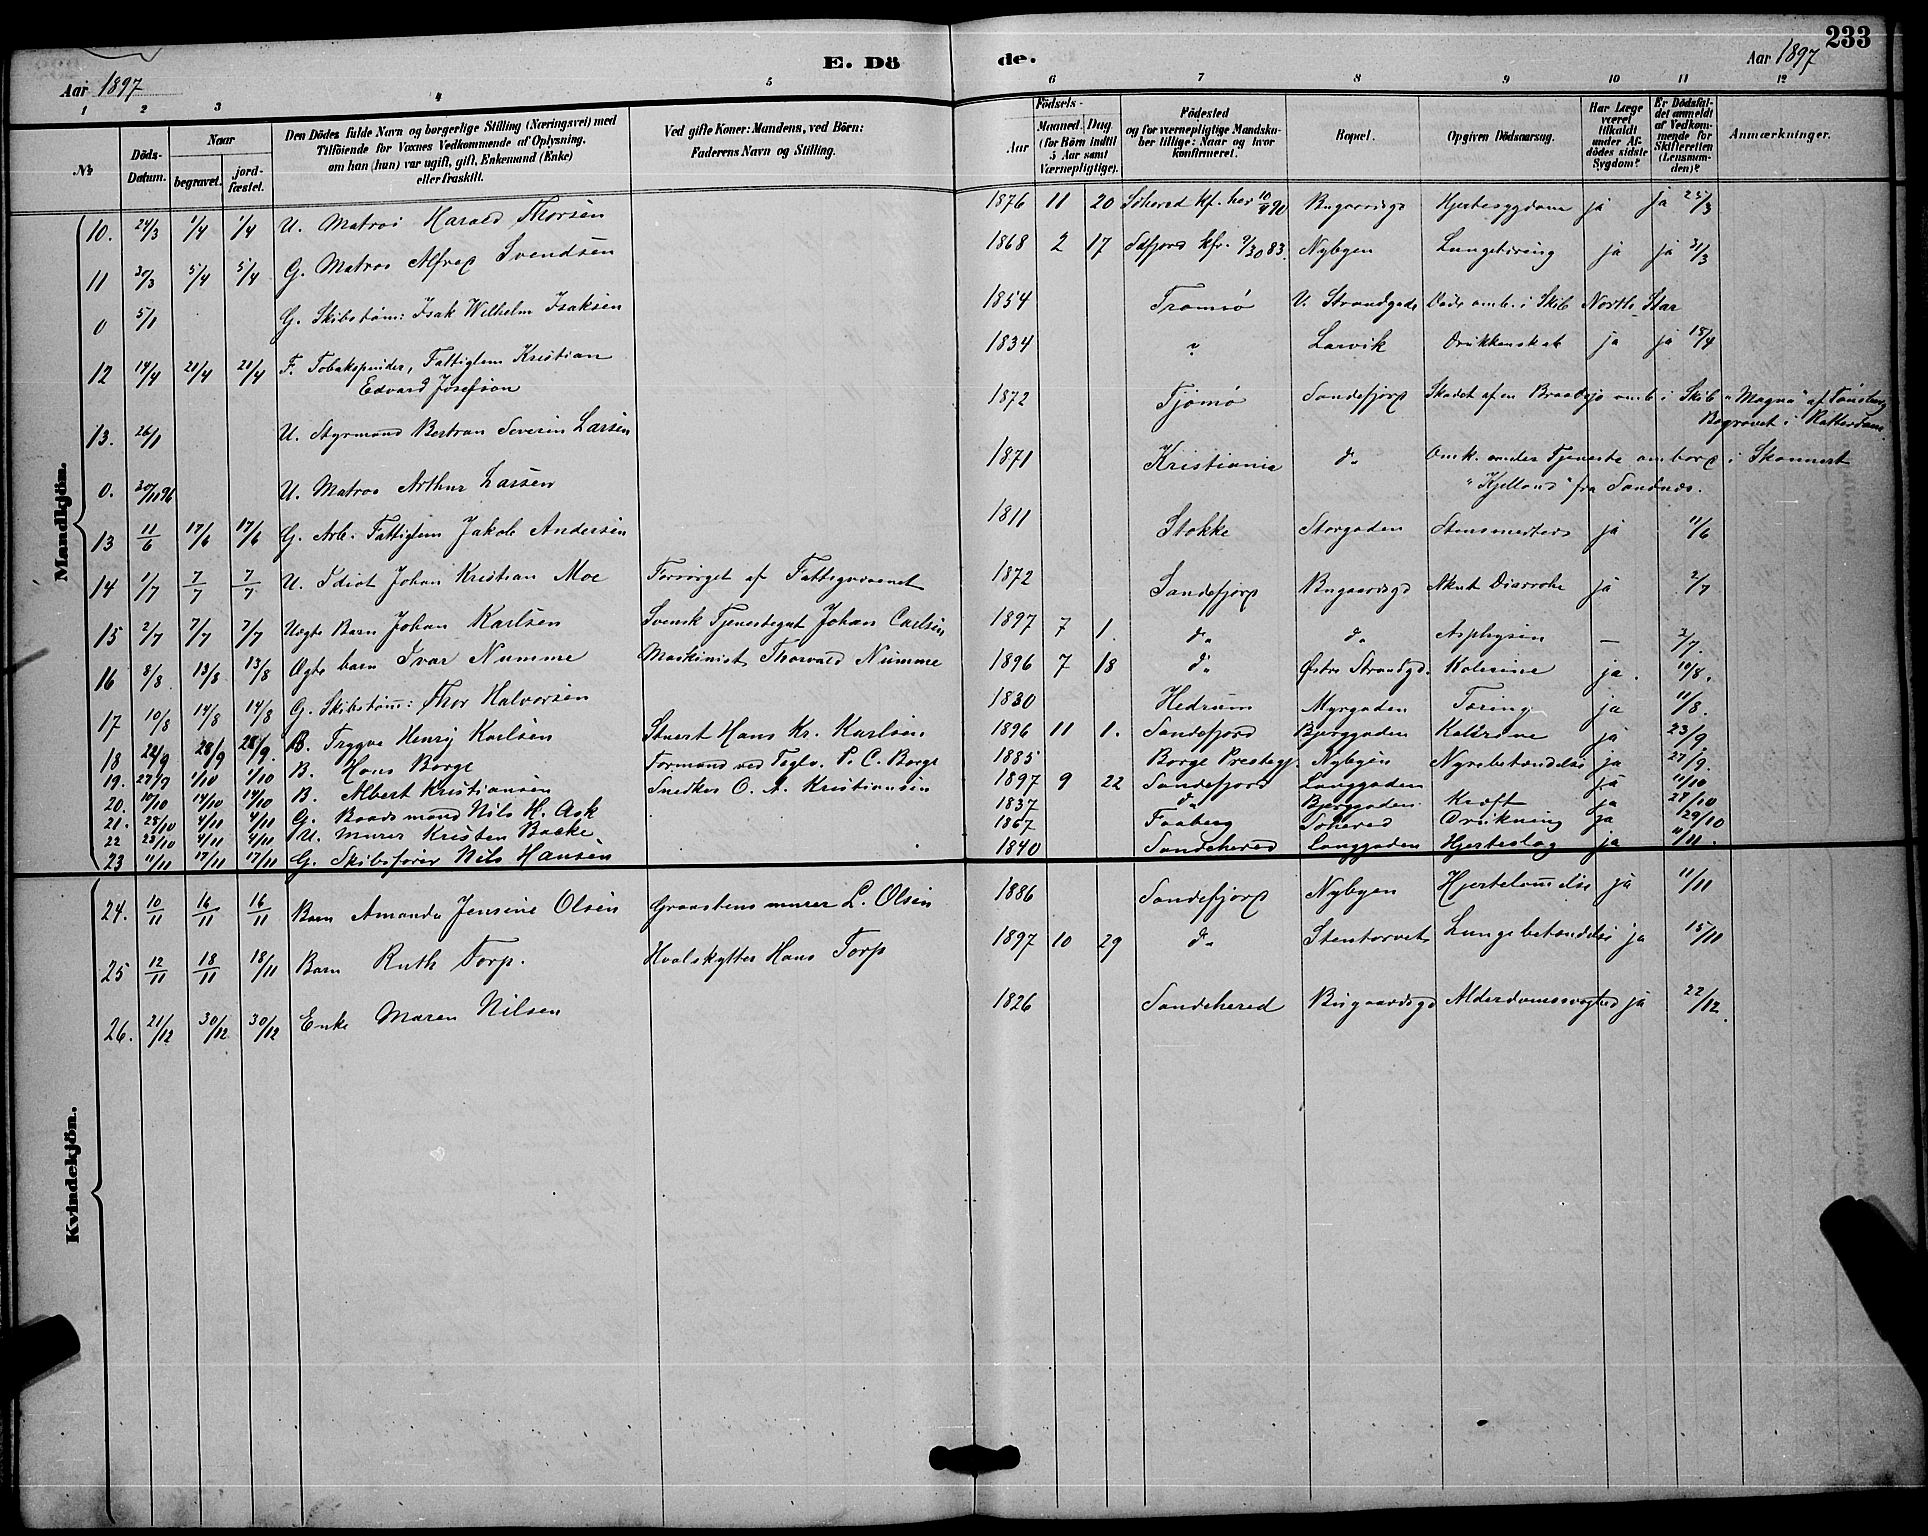 233
E. Dö de.
Aar 1897
Aar 1897
1 2 3 4 5 6 7 8 9 10 11 12
№
Döds-Datum.
Naar
begravet.
jord-fæstet.
Den Dödes fulde Navn og borgerlige Stilling (Næringsvei) med
Tilföiende for Voxnes Vedkommende af Oplysning,
om han (hun) var ugift, gift, Enkemand (Enke)
eller fraskilt.
Ved gifte Koner: Mandens, ved Börn:
Faderens Navn og Stilling.
Födsels-
Aar
Maaned. Dag
(for Börn indtil
5 Aar samt
Værnepligtige).
Födested
og for værnepligtige Mandska-
ber tillige: Naar og hvor
konfirmeret.
Bopæl.
Opgiven Dödsaarsag.
Har Læge
været
tilkaldt
under Af-
dödes sidste
Sygdom?
Er Dödsfal-
det anmeldt
af Vedkom-
mende for
Skifteretten
(Lensman-
den)?
Anmærkninger.
Mandkjön.
10. 24/3 1/4 1/4 U. Matros Harald Thorsen 1876 11 20 Sdherred kf. her 10/8 90 Bugaardsgd Hjertesygdom ja ja 25/3
11 30/3 5/4 5/4 G. Matros Alfred Svendsen 1868 2 17 Sdfjord kfr. 9/30 83. Nybyen Lungetæring ja ja 31/3
0 5/1 G. Skibstøm: Isak Wilhelm Isaksen 1854 Tromsø V. Strandgade Døde omb. i Skib North Star
12 14/4 20/4 20/4 F. Tobakspinder, Fattiglem Kristian
Edvard Josefson 1834 ? Larvik Drukkenskab ja ja 15/4
13. 26/1 U. Styrmand Bertran Severin Larsen 1872 Tjømø Sandefjord Skadet af en Braadsjø omb. i Skib "Magna" af Tønsberg
Begravet i Rotterdam.
0. 30/11 96 U. Matros Arthur Larsen 1871 Kristiania do Omk. under Tjeneste ombord i Skonnert
"Kjelland" fra Sandnæs.
13 11/6 17/6 17/6 G. Arb. Fattiglem Jakob Andersen 1811 Stokke Storgaden Stensmerter ja 11/6
14 1/7 7/7 7/7 U. Idiot Johan Kristian Moe Forsørget af Fattigvæsenet 1872 Sandefjord Bugaardsgd Akut Diarrohe ja 2/7
15 2/7 7/7 7/7 Uægte Barn Johan Karlsen Svensk Tjenestegut Johan Carlsen 1897 7 1. do do Asphyxin — 3/7.
16 8/8 13/8 13/8 Ægte barn Ivar Numme Maskinist Thorvald Numme 1896 7 18 do Østre Strandgd. Kolerine ja. 10/8.
17 10/8 14/8 14/8 G. Skibstøm: Thor Halvorsen 1830 Hedrum Myrgaden Tæring ja 11/8.
18 22/9 28/9 28/9. B. Trygve Henry Karlsen Stuert Hans Kr. Karlsen 1896 11 1. Sandefjord Bjerggaden Kolerine ja 23/9
19. 27/9 1/10 1/10 B. Hans Borge Formand ved Teglv. P. C. Borge 1885 Borge Prestegj. Nybyen Nyrebetændelse ja 27/9.
20. 10/10 14/10 14/10 B. Albert Kristiansen Snedker O. A. Kristiansen 1897 9 22 Sandefjord Langgaden ja 11/10
21. 28/10 4/11 4/11 G. Baadsmand Nils H. Ask 1837 do Bjerggaden Kræft ja 28/10
22 28/10 4/11 4/11 U. Murer Kristen Bakke 1867 Faaberg Soherred Drukning ja 29/10
23 11/11 17/11 17/11 G. Skibsfører Nils Hansen 1840 Sandeherred Langgaden Hjerteslag ja 11/11.
Kvindekjön.
24. 10/11 16/11 16/11 Barn Amanda Jensine Olsen Graastensmurer L. Olsen 1886 Sandefjord Nybyen Hjertelamelse ja 11/11
25 12/11 18/11 18/11 Barn Ruth Torp. Hvalskytter Hans Torp 1897 10 29 do Stentorvet Lungebetændelse ja 15/11
26. 21/12 30/12 30/12 Enke Maren Nilsen 1826 Sandeherred Bugaardsgd Alderdomssvaghed ja 22/12.